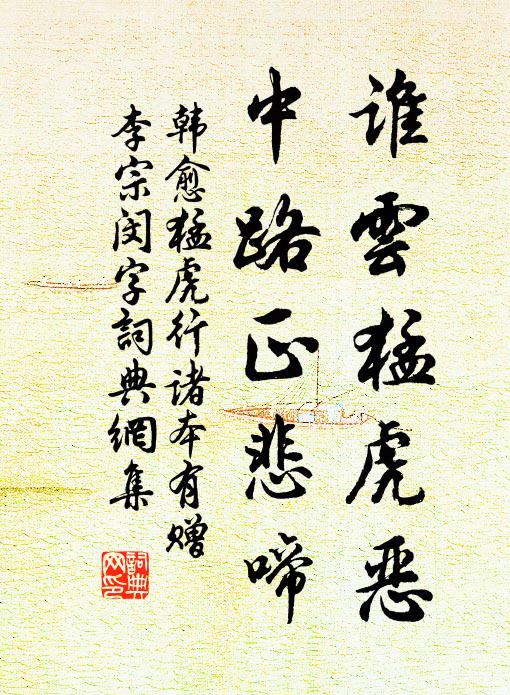 谁雲猛虎恶
中路正悲啼
韩愈猛虎行诸本有赠
李宗闵字詞典網集
詞典
网印